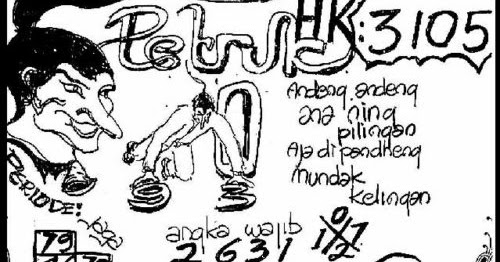 Petruk HK: 3105
Andeng andeng
ana ning
pilingan
Aja di pandheng
mundak
kelingan
PERIODE:
angka wajib
2 6 3 1
79